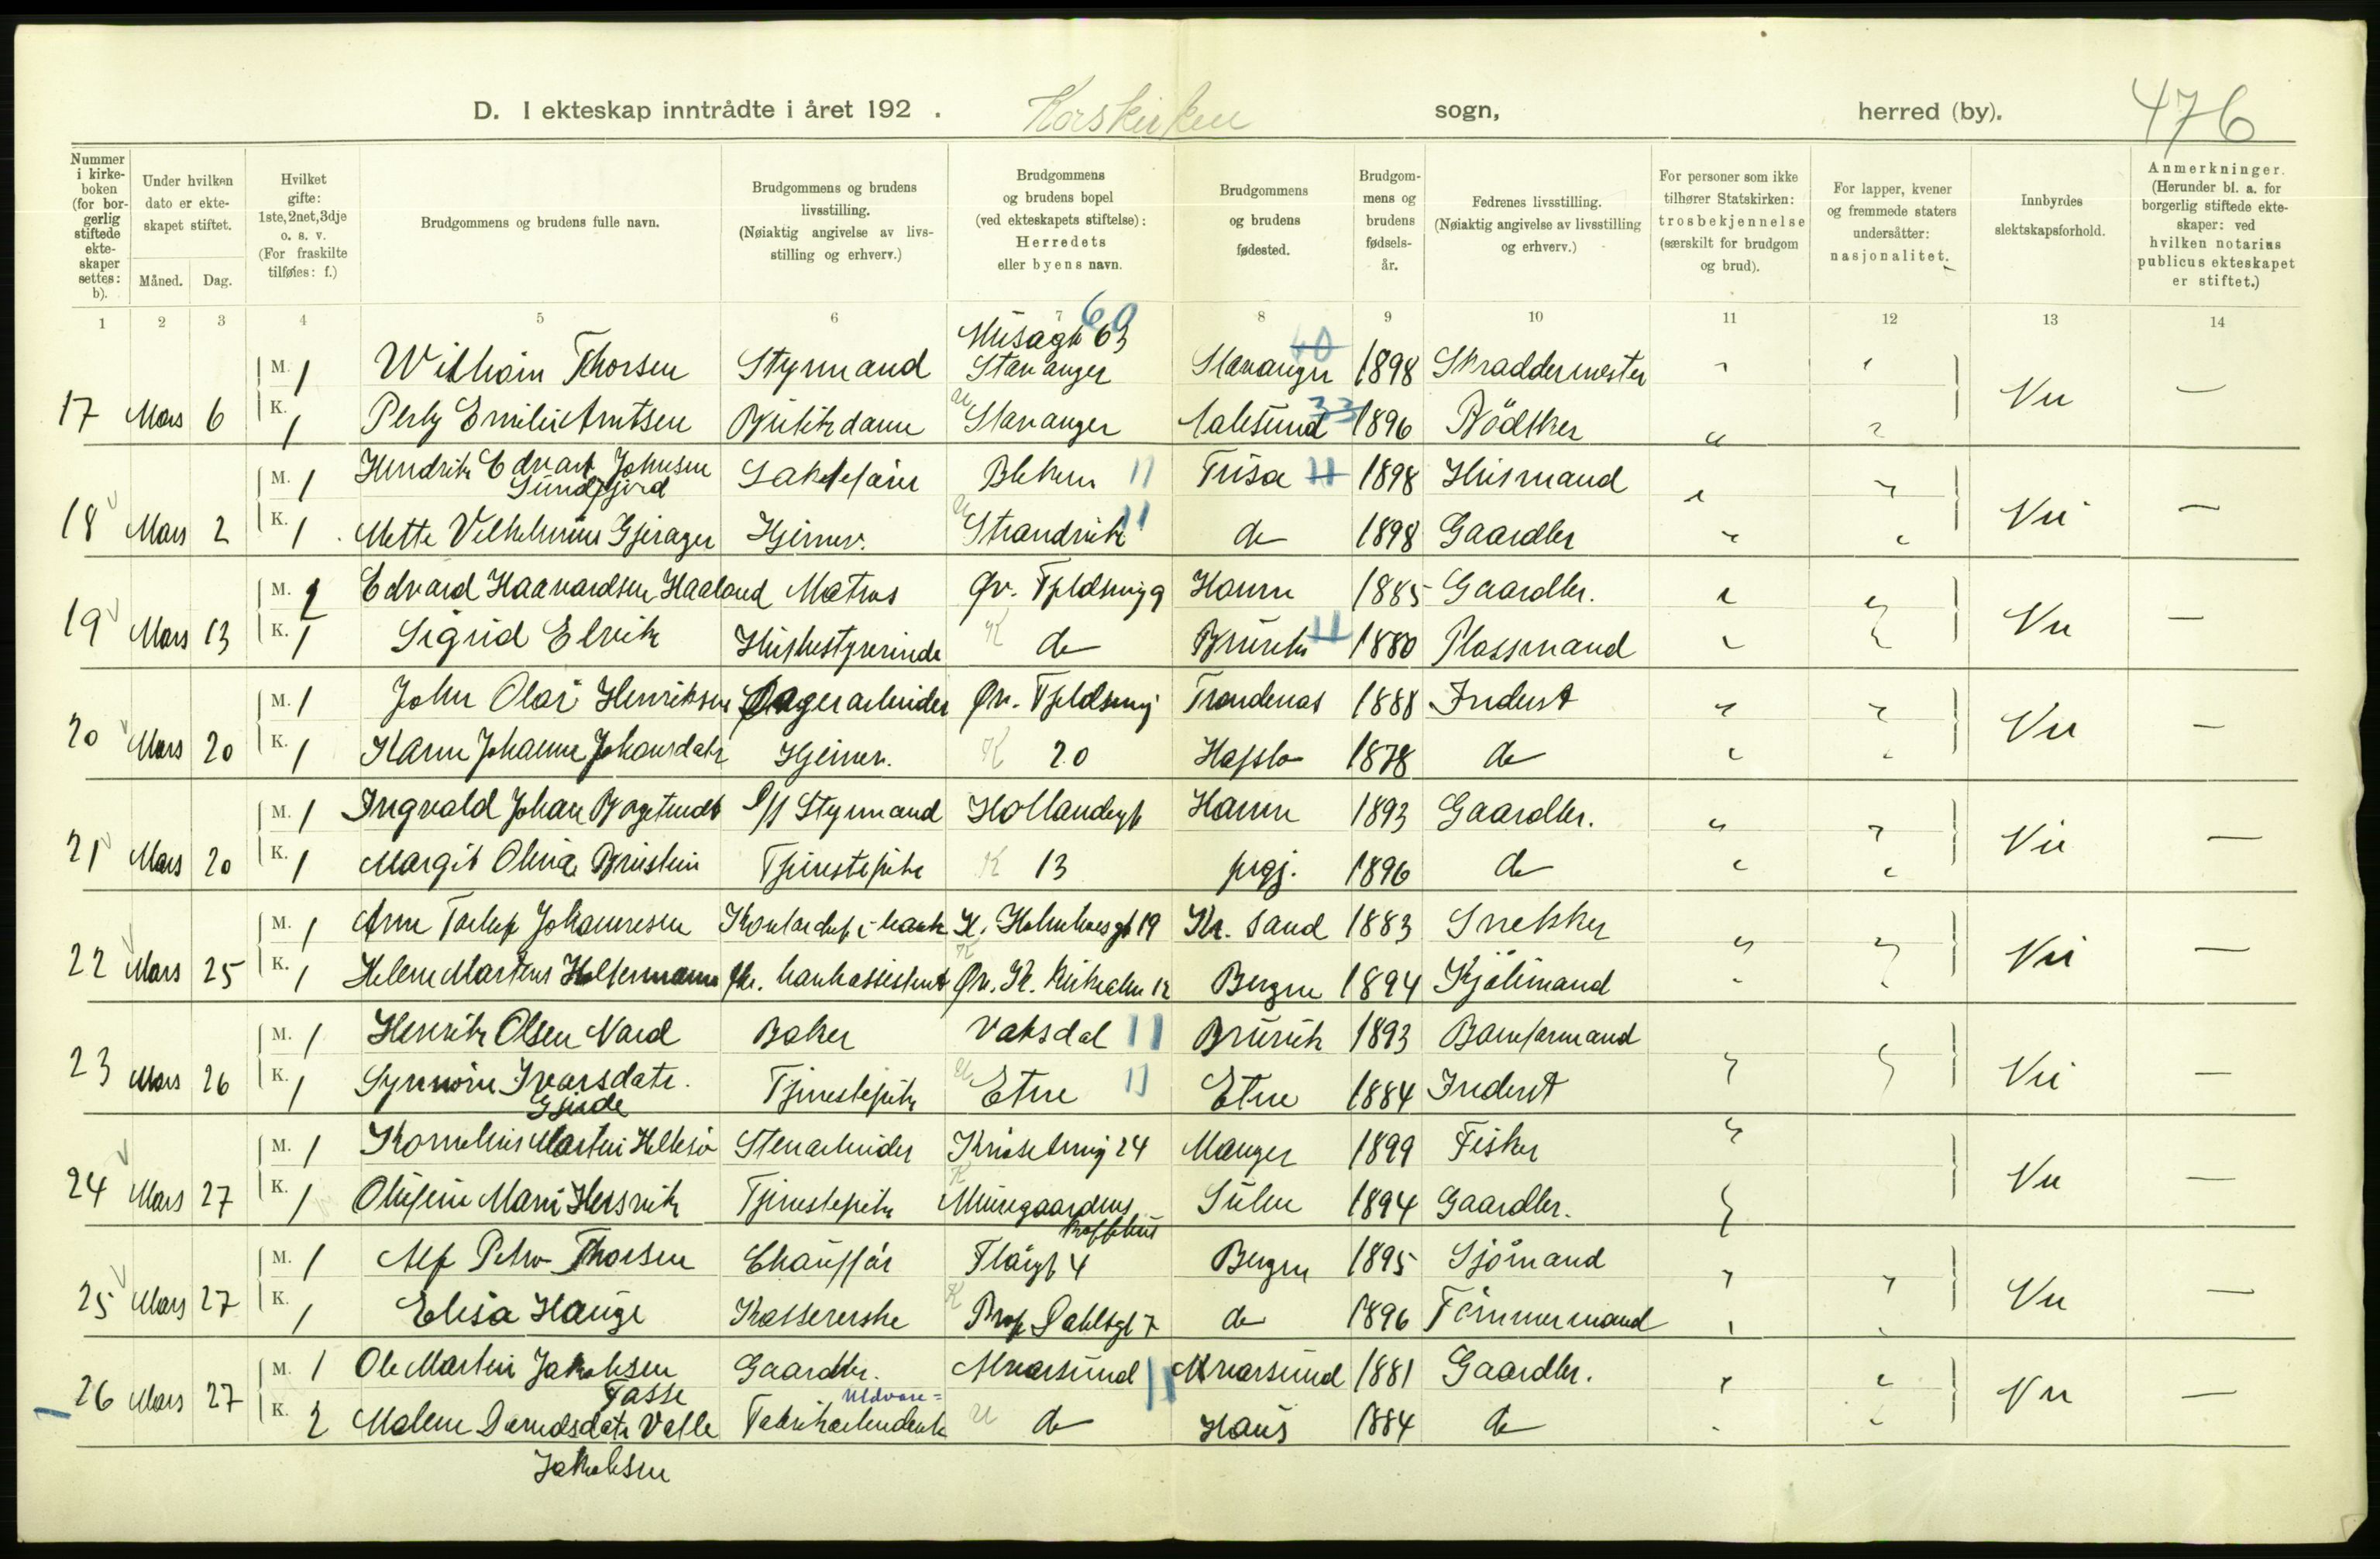 D. I ekteskap inntrådte i året 192 . Korskirken sogn, herred (by). 476
Nummer i kirkeboken (for borgerlig stiftede ekteskaper settes: b).
Under hvilken dato er ekteskapet stiftet.
Måned. Dag.
Hvilket gifte: 1ste, 2net, 3dje o. s. v. (For fraskilte tilføies: f.)
Brudgommens og brudens fulle navn.
Brudgommens og brudens livsstilling. (Nøiaktig angivelse av livsstilling og erhverv.)
Brudgommens og brudens bopel (ved ekteskapets stiftelse): Herredets eller byens navn.
Brudgommens og brudens fødested.
Brudgommens og brudens fødselsår.
Fedrenes livsstilling. (Nøiaktig angivelse av livsstilling og erhverv.)
For personer som ikke tilhører Statskirken: trosbekjennelse (særskilt for brudgom og brud).
For lapper, kvener og fremmede staters undersåtter: nasjonalitet.
Innbyrdes slektskapsforhold.
Anmerkninger. (Herunder bl. a. for borgerlig stiftede ekteskaper: ved hvilken notarius publicus ekteskapet er stiftet.)
1 2 3 4 5 6 7 8 9 10 11 12 13 14
60
Musagt 63
40
M. 1 Wilhain Thorsen Styrmand Stavanger Stavanger 1898 Skraddermester
17 Mars 6 K. 1 Perly Emilie Arntsen Butikdame Stavanger Aalesund 33 1896 Bödtker Nei —
M. 1 Hendrik Edvart Johnsen Sundfjord Bleken 11 Frisa 11 1898 Husmand
18 Mars 2 K. 1 Mette Vilhelmine Gjerager Hjemv. Strandvik 11 do 1898 Gaardbr Nei —
M. 2 Edvard Haavardsen Haaland Matros Øv. Fjeldsmug 9 Hamre 1885 Gaardbr.
19 Mars 13 K. 1 Sigrid Elvik Husbestyrerinde K do Bruvik 11 1880 Plassmand Nei —
M. 1 John Olai Henriksen Lagerarbeider Øv. Fjeldsmug Trondenas 1888 Inderst
20 Mars 20 K. 1 Karen Johanne Johansdatr Hjemv. K 20 Hafslo 1878 do Nei —
M. 1 Ingvald Johan Bogetvedt S/S Styrmand Hollendergt Hamre 1893 Gaardbr.
21 Mars 20 K. 1 Margit Olivia Brustein Tjenestepike K 13 1896 do Nei —
M. 1 Arne Tarlef Johannesen Kontorchef i bank H. Holmboesgt 19 Kr. sand 1883 Snekker
22 Mars 25 K. 1 Helene Martens Holtermann fhv. bankassistent K Øv. Kr. Kirkealm 12 Bergen 1894 Kjöbmand Nei —
M. 1 Henrik Olsen Vard Baker Vaksdal 11 Bruvik 1893 Banformand
23 Mars 26 K. 1 Synnöve Ivarsdatr. Gjerde Tjenestepike Etne 11 Etne 1884 Inderst Nei —
M. 1 Kornelius Martin Hellesö Stenarbeider Kniksebrug 24 Manger 1899 Fisker
24 Mars 27 K. 1 Olufine Marie Hersvik Tjenestepike K Muregaardens Kaffehus Sulen 1894 Gaardbr. Nei —
M. 1 Alf Petro Thorsen Chauffør Fløigt 4 Bergen 1895 Sjömand
25 Mars 27 K. 1 Elisa Hauge Kassererske K Prof. Dahlsgt 7 do 1896 Tömmermand Nei —
M. 1 Ole Martin Jakobsen Tasse Gaardbr. Alversund 11 Alversund 1881 Gaardbr.
26 Mars 27 K. 2 Malene Davidsdatr Valle Jakobsen Uldvare= Fabrikarbeiderske U do Haus 1884 do Nei —